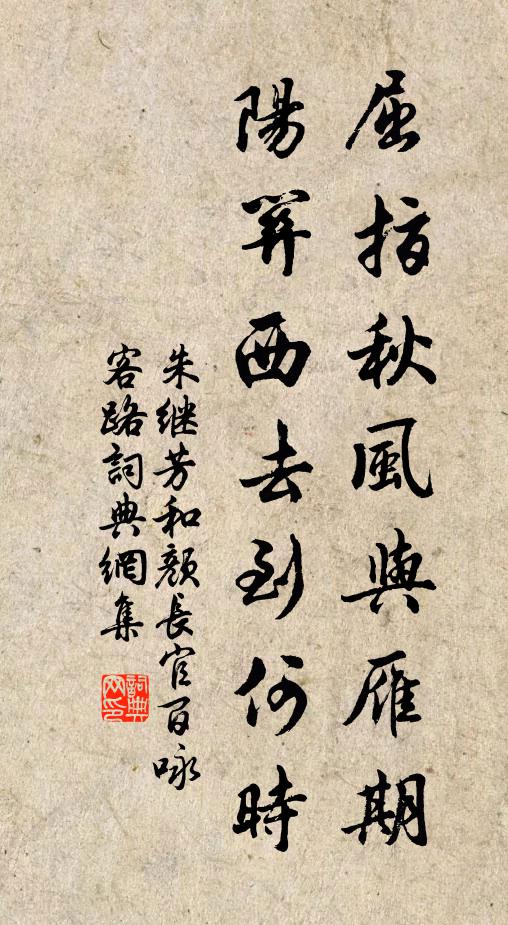 屈指秋風與雁期
陽關西去到何時
朱继芳和顏長官百咏
客路詞典網集
詞典網印